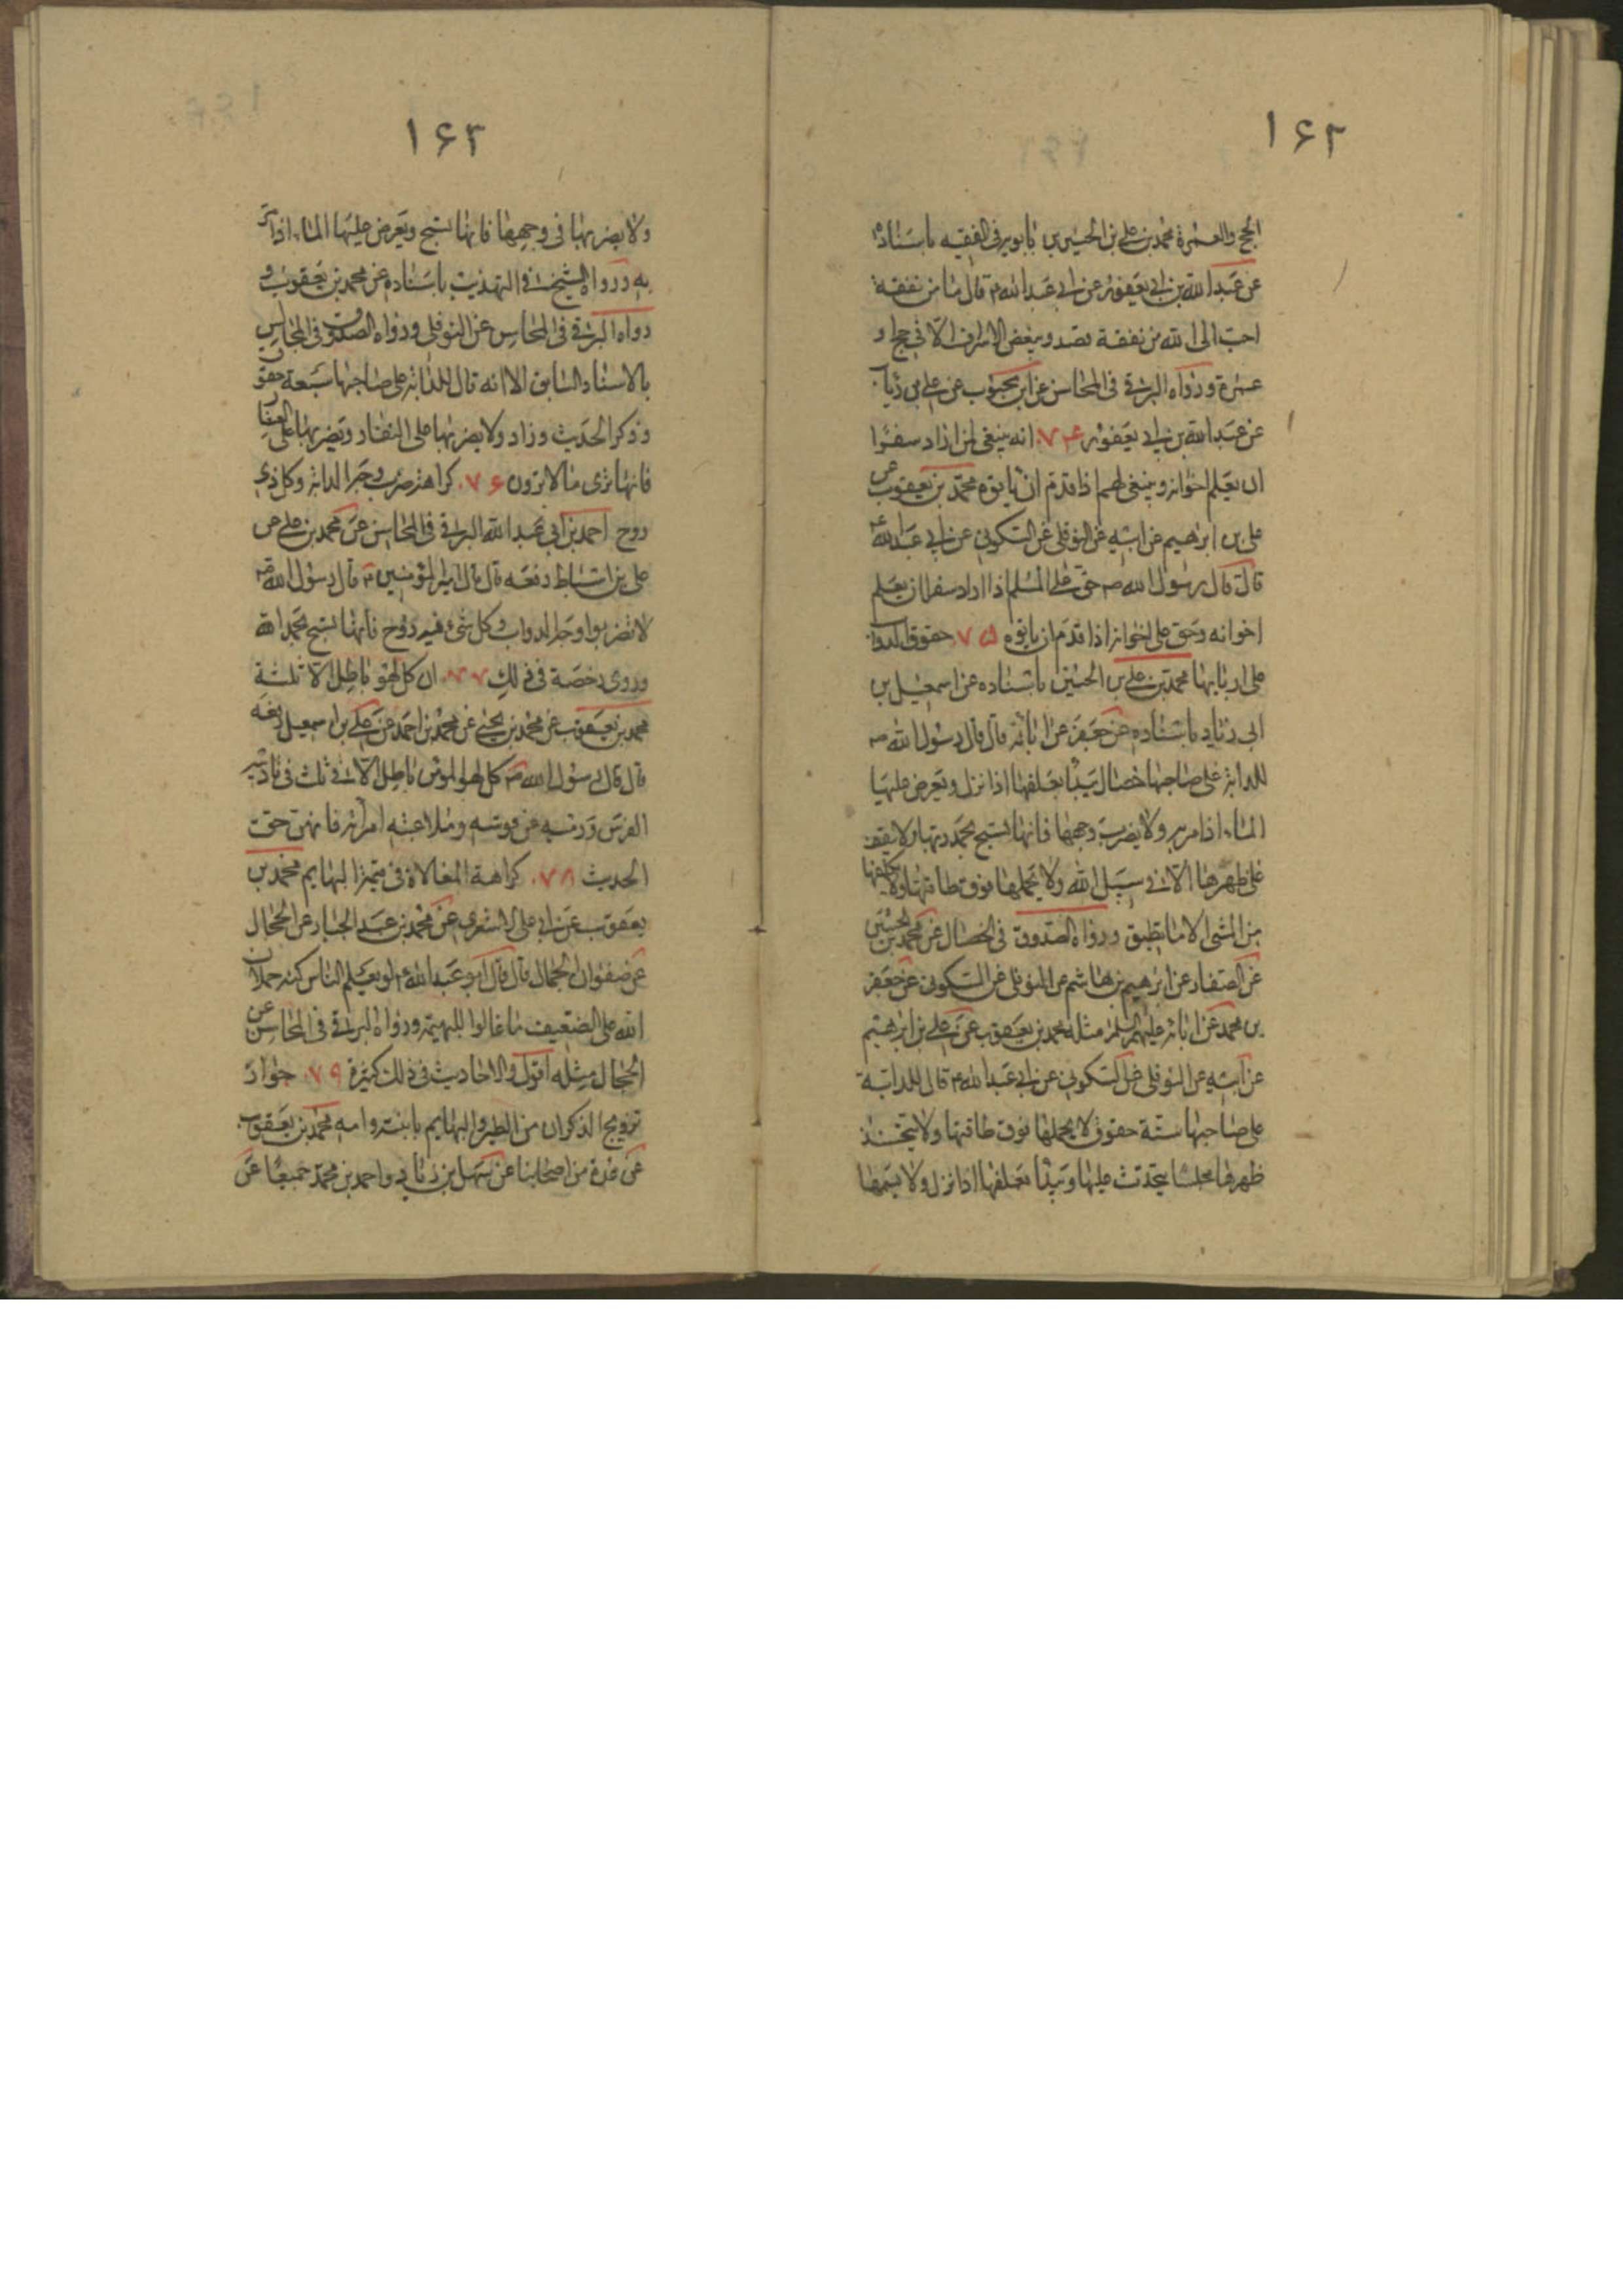 ۱۶۲
الحج والعمرة محمد بن علي بن الحسين بن بابويه في الفقيه باسناده
عن عبد الله بن ابي يعفور عن ابي عبد الله ع قال ما من نفقة
احب الى الله من نفقة قصد ويبغض الاسراف الا في حج او
عمرة ورواه البرقي في المحاسن عن ابن محبوب عن علي بن رئاب
عن عبد الله بن ابي يعفور ۷۴ انه ينبغي لمن اراد سفرا
ان يعلم اخوانه وينبغي لهم اذا قدم ان ياتوه محمد بن يعقوب عن
علي بن ابرهيم عن ابيه عن النوفلي عن السكوني عن ابي عبد الله ع
قال قال رسول الله ص حق على المسلم اذا اراد سفرا ان يعلم
اخوانه وحق على اخوانه اذا قدم ان ياتوه ۷۵ حقوق الدواب
على اربابها محمد بن علي بن الحسين باسناده عن اسمعيل بن
ابي زياد باسناده عن جعفر عن ابائه قال قال رسول الله ص
للدابة على صاحبها خصال يبدأ بعلفها اذا نزل ويعرض عليها
الماء اذا مر به ولا يضرب وجهها فانها تسبح بحمد ربها ولا يقف
على ظهرها الا في سبيل الله ولا يحملها فوق طاقتها ولا يكلفها
من المشي الا ما تطيق ورواه الصدوق في الخصال عن محمد بن الحسين
عن الصفار عن ابرهيم بن هاشم عن النوفلي عن السكوني عن جعفر
بن محمد عن ابائه عليهم السلم مثله محمد بن يعقوب عن علي بن ابرهيم
عن ابيه عن النوفلي عن السكوني عن ابي عبد الله ع قال للدابة
على صاحبها ستة حقوق لا يحملها فوق طاقتها ولا يتخذ
ظهرها مجلسا يتحدث عليها ويبدأ بعلفها اذا نزل ولا يسمها
۱۶۳
ولا يضربها في وجهها فانها تسبح ويعرض عليها الماء اذا مر
به ورواه الشيخ في التهذيب باسناده عن محمد بن يعقوب و
رواه البرقي في المحاسن عن النوفلي ورواه الصدوق في المجالس
بالاسناد السابق الا انه قال للدابة على صاحبها سبعة حقوق
وذكر الحديث وزاد ولا يضربها على النفار ويضربها على العثار
فانها ترى ما لا ترون ۷۶ كراهة ضرب وجه الدابة وكل ذي
روح احمد بن ابي عبد الله البرقي في المحاسن عن محمد بن علي عن
علي بن اسباط رفعه قال قال امير المؤمنين ع قال رسول الله ص
لا تضربوا وجه الدواب وكل شيء فيه روح فانها تسبح بحمد الله
وروي رخصة في ذلك ۷۷ ان كل لهو باطل الا ثلثة
محمد بن يعقوب عن محمد بن يحيى عن محمد بن احمد عن علي بن اسمعيل رفعه
قال قال رسول الله ص كل لهو المؤمن باطل الا في ثلث في تاديبه
الفرس ورميه عن قوسه وملاعبته امراته فانهن حق
الحديث ۷۸ كراهة المغالاة في البهايم محمد بن
يعقوب عن ابي علي الاشعري عن محمد بن عبد الجبار عن الحجال
عن صفوان الجمال قال قال ابو عبد الله ع لو يعلم الناس كنه حملان
الله على الضعيف ما غالوا ببهيمة ورواه البرقي في المحاسن عن
الحجال مثله اقول والاحاديث في ذلك كثيرة ۷۹ جواز
تزويج الذكران من الطير والبهايم بابنته وامه محمد بن يعقوب
عن عدة من اصحابنا عن سهل بن زياد واحمد بن محمد جميعا عن